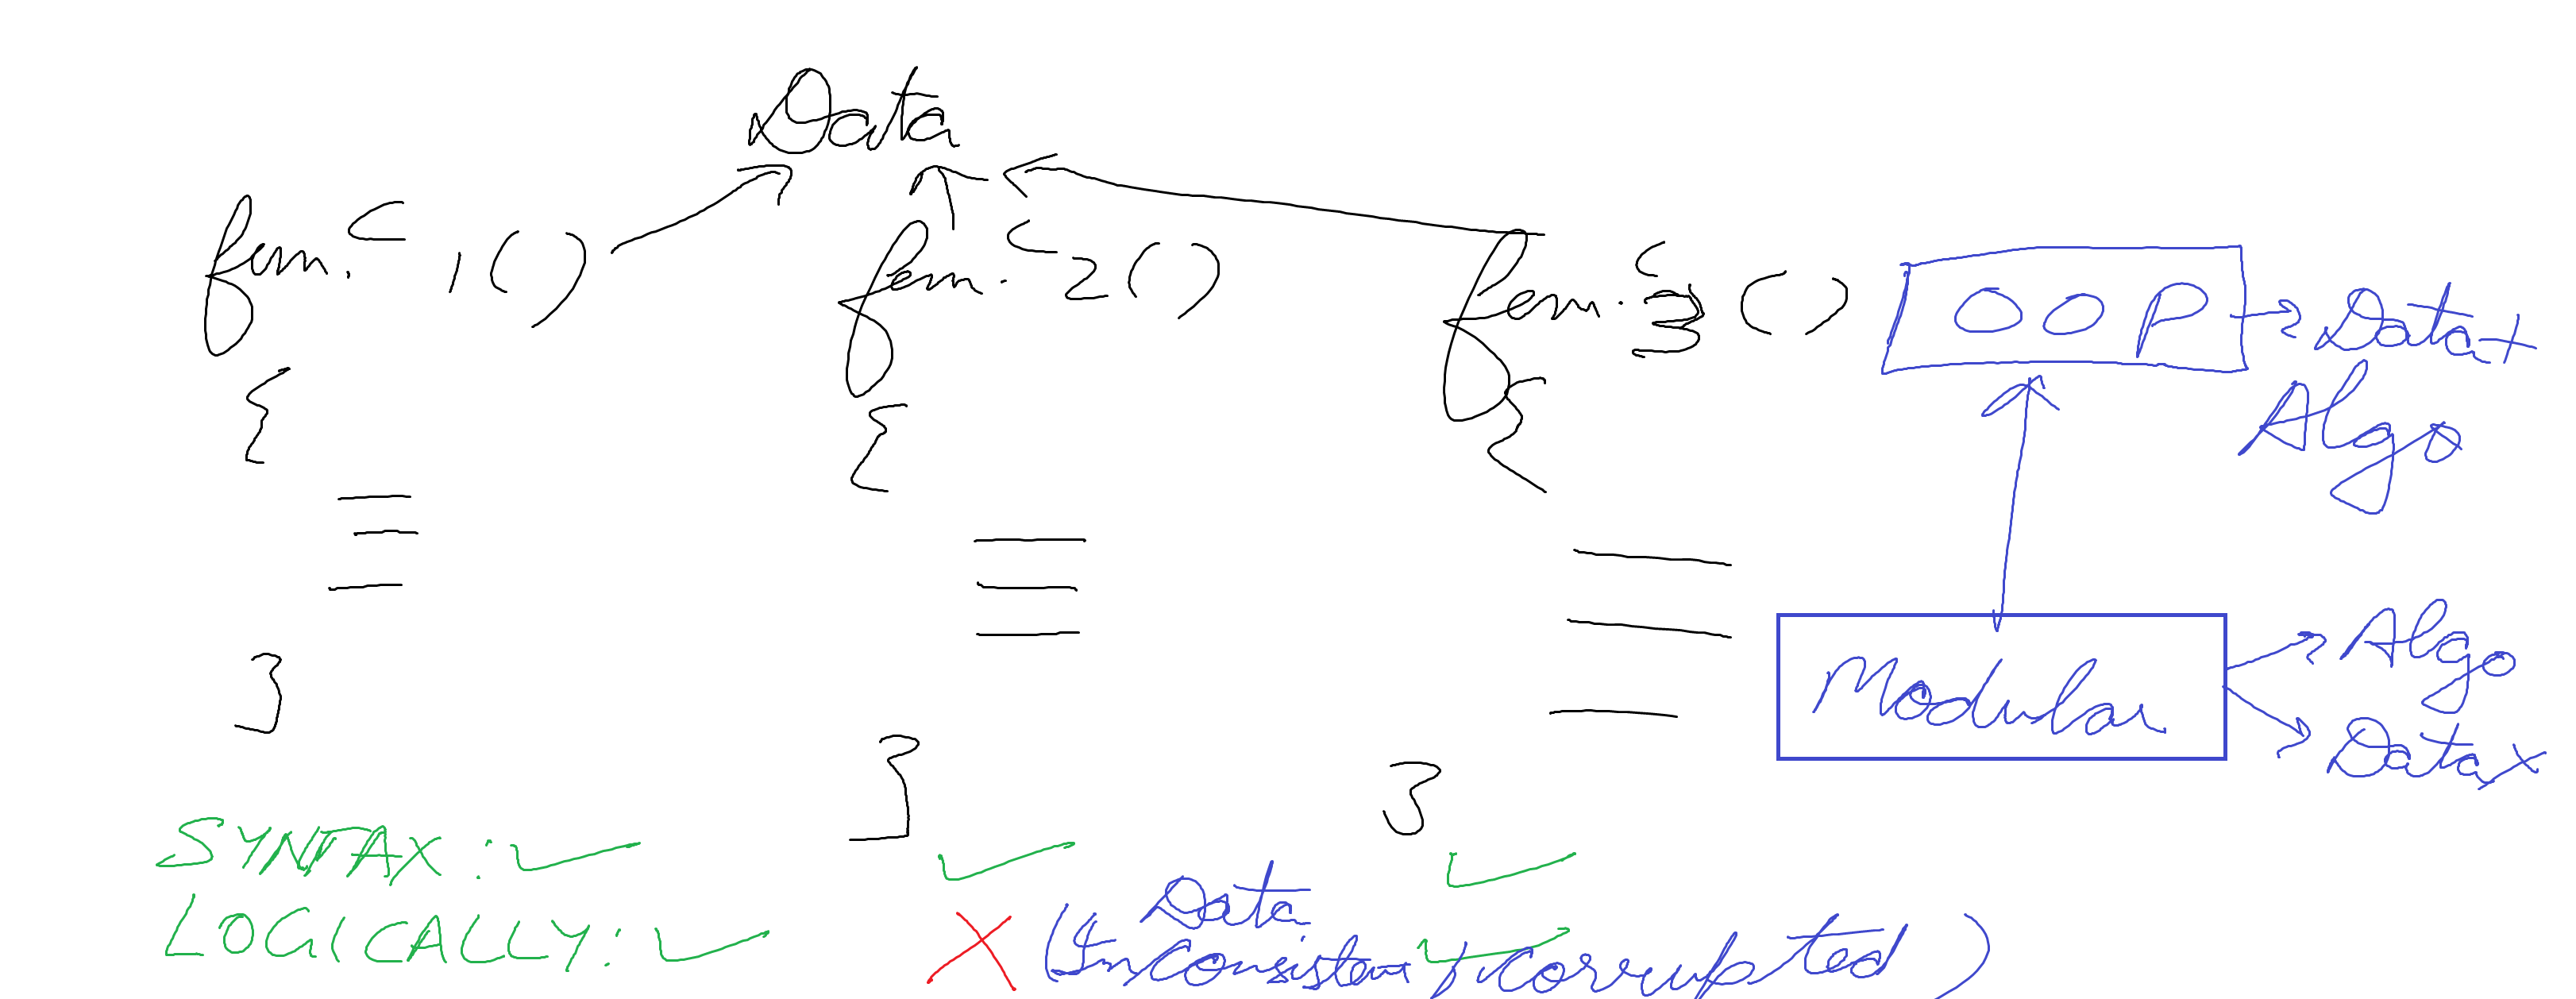 Data
func 1()
func 2()
func 3()
{
{
{
}
}
}
OOP
Data +
Algo
Modular
Algo
Data x
SYNTAX: ✓ ✓ ✓
LOGICALLY: ✓ X ✓
Data
(Inconsistent / corrupted)